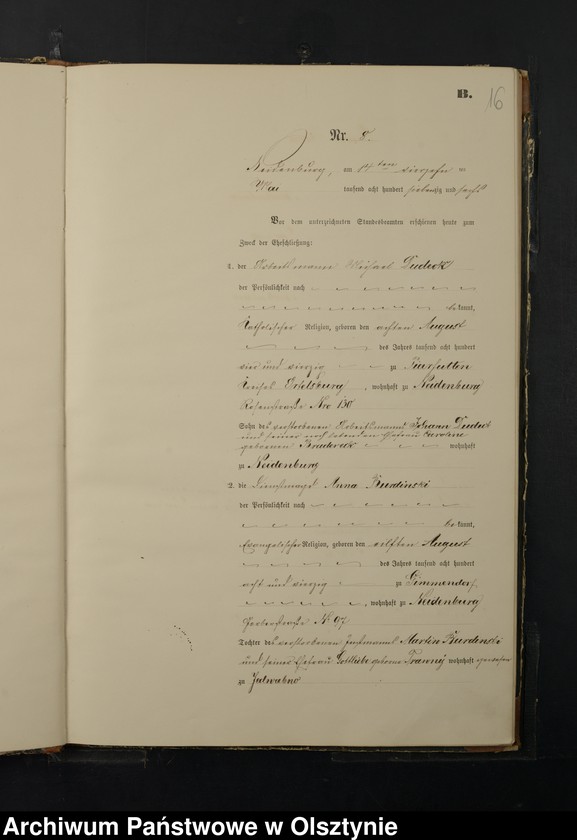 B.
16
Nr. 8.
Neidenburg, am 14ten vierzehn ten
Mai tausend acht hundert siebenzig und sechs
Vor dem unterzeichneten Standesbeamten erschienen heute zum
Zweck der Eheschließung:
1. der Arbeitsmann Michael Dudeck
der Persönlichkeit nach
bekannt,
katholischer Religion, geboren den achten August
des Jahres tausend acht hundert
vier und vierzig zu
Kreises Ortelsburg, wohnhaft zu Neidenburg
Rosenstraße Nro 130
Sohn des verstorbenen Arbeitsmanns Johann Dudeck
und seiner noch lebenden Ehefrau Caroline
geborenen wohnhaft
zu Neidenburg
2. die Dienstmagd Anna Burdinski
der Persönlichkeit nach
bekannt,
evangelischer Religion, geboren den elften August
des Jahres tausend acht hundert
acht und vierzig zu Gimmendorf
, wohnhaft zu Neidenburg
N. 97
Tochter des verstorbenen Instmanns Martin Burdinski
und seiner Ehefrau Gottliebe geborne Trawny wohnhaft gewesen
zu Jedwabno
Archiwum Państwowe w Olsztynie